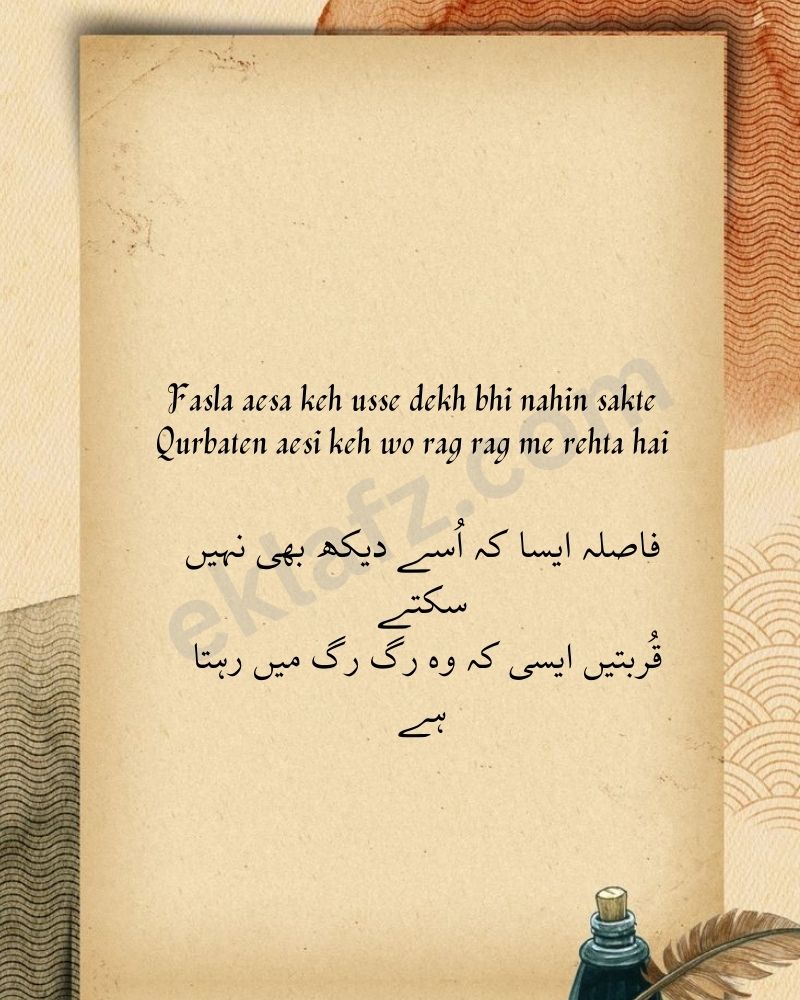 Fasla aesa keh usse dekh bhi nahin sakte
Qurbaten aesi keh wo rag rag me rehta hai
فاصلہ ایسا کہ اُسے دیکھ بھی نہیں
سکتے
قُربتیں ایسی کہ وہ رگ رگ میں رہتا
ہے
ektafz.com